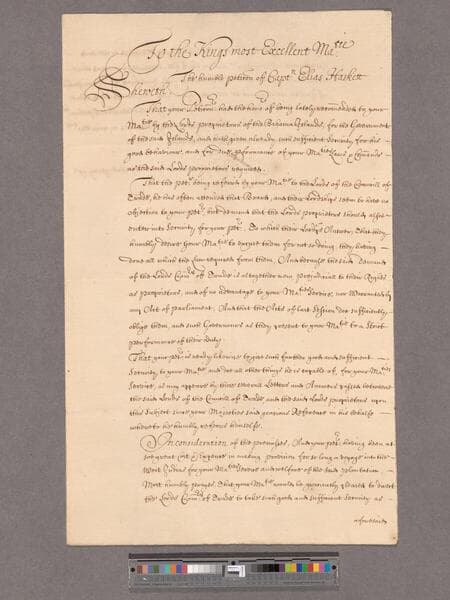 To the Kings most Excellent Ma:tie
The humble petition of Capt:n Elias Haskett
Sheweth
That your Petitionr hath the honr of being lately recomended to your
Ma:tie by the Lords proprietors of the Bahama Islands, for the Government
of the said Islands, and hath given already such sufficient Security for his
good behaviour, and for due performance of your Ma:ties Laws & Comands
as the said Lords proprietors required.
That the petr being referred by your Ma:tie to the Lords of the Councill of
Trade, he has often attended that Board, and their Lordships seem to have no
objection to your petr, but demand that the Lords proprietors should also
enter into Security, for your petr. To which their Lordps Answer, that they
humbly desire your Ma:tie to excuse them for not so doing, they having
done all which the Law required from them, And because the said Demand
of the Lords Comrs of Trade is altogether new prejudicial to their Rights
as proprietors, and of no advantage to your Ma:ties Service, nor Warranted by
any Act of parliament. And that the Acts of last Session do sufficiently
oblige them, and such Governours as they present to your Ma:tie to a Strict
performance of their duty.
That your petr is ready likewise to give such further good and sufficient
Security to your Ma:tie and do all other things he is capable of, for your Ma:ties
Service, as may appear by three several Letters and Answers passed between
the said Lords of the Councill of Trade and the said Lords proprietors upon
this Subject since your Majesties said gracious Reference in his behalfe
whereto he humbly referrs himselfe.
In consideration of the premises, And your petr having been at
so great Cost & Expence in making provision for so long a voyage into the
West Indies for your Ma:ties Service and welfare of the said plantation
Most humbly prayes, that your Ma:tie would be graciously pleased to direct
the Lords Comrs of Trade to take such good and sufficient Security as
aforesaid